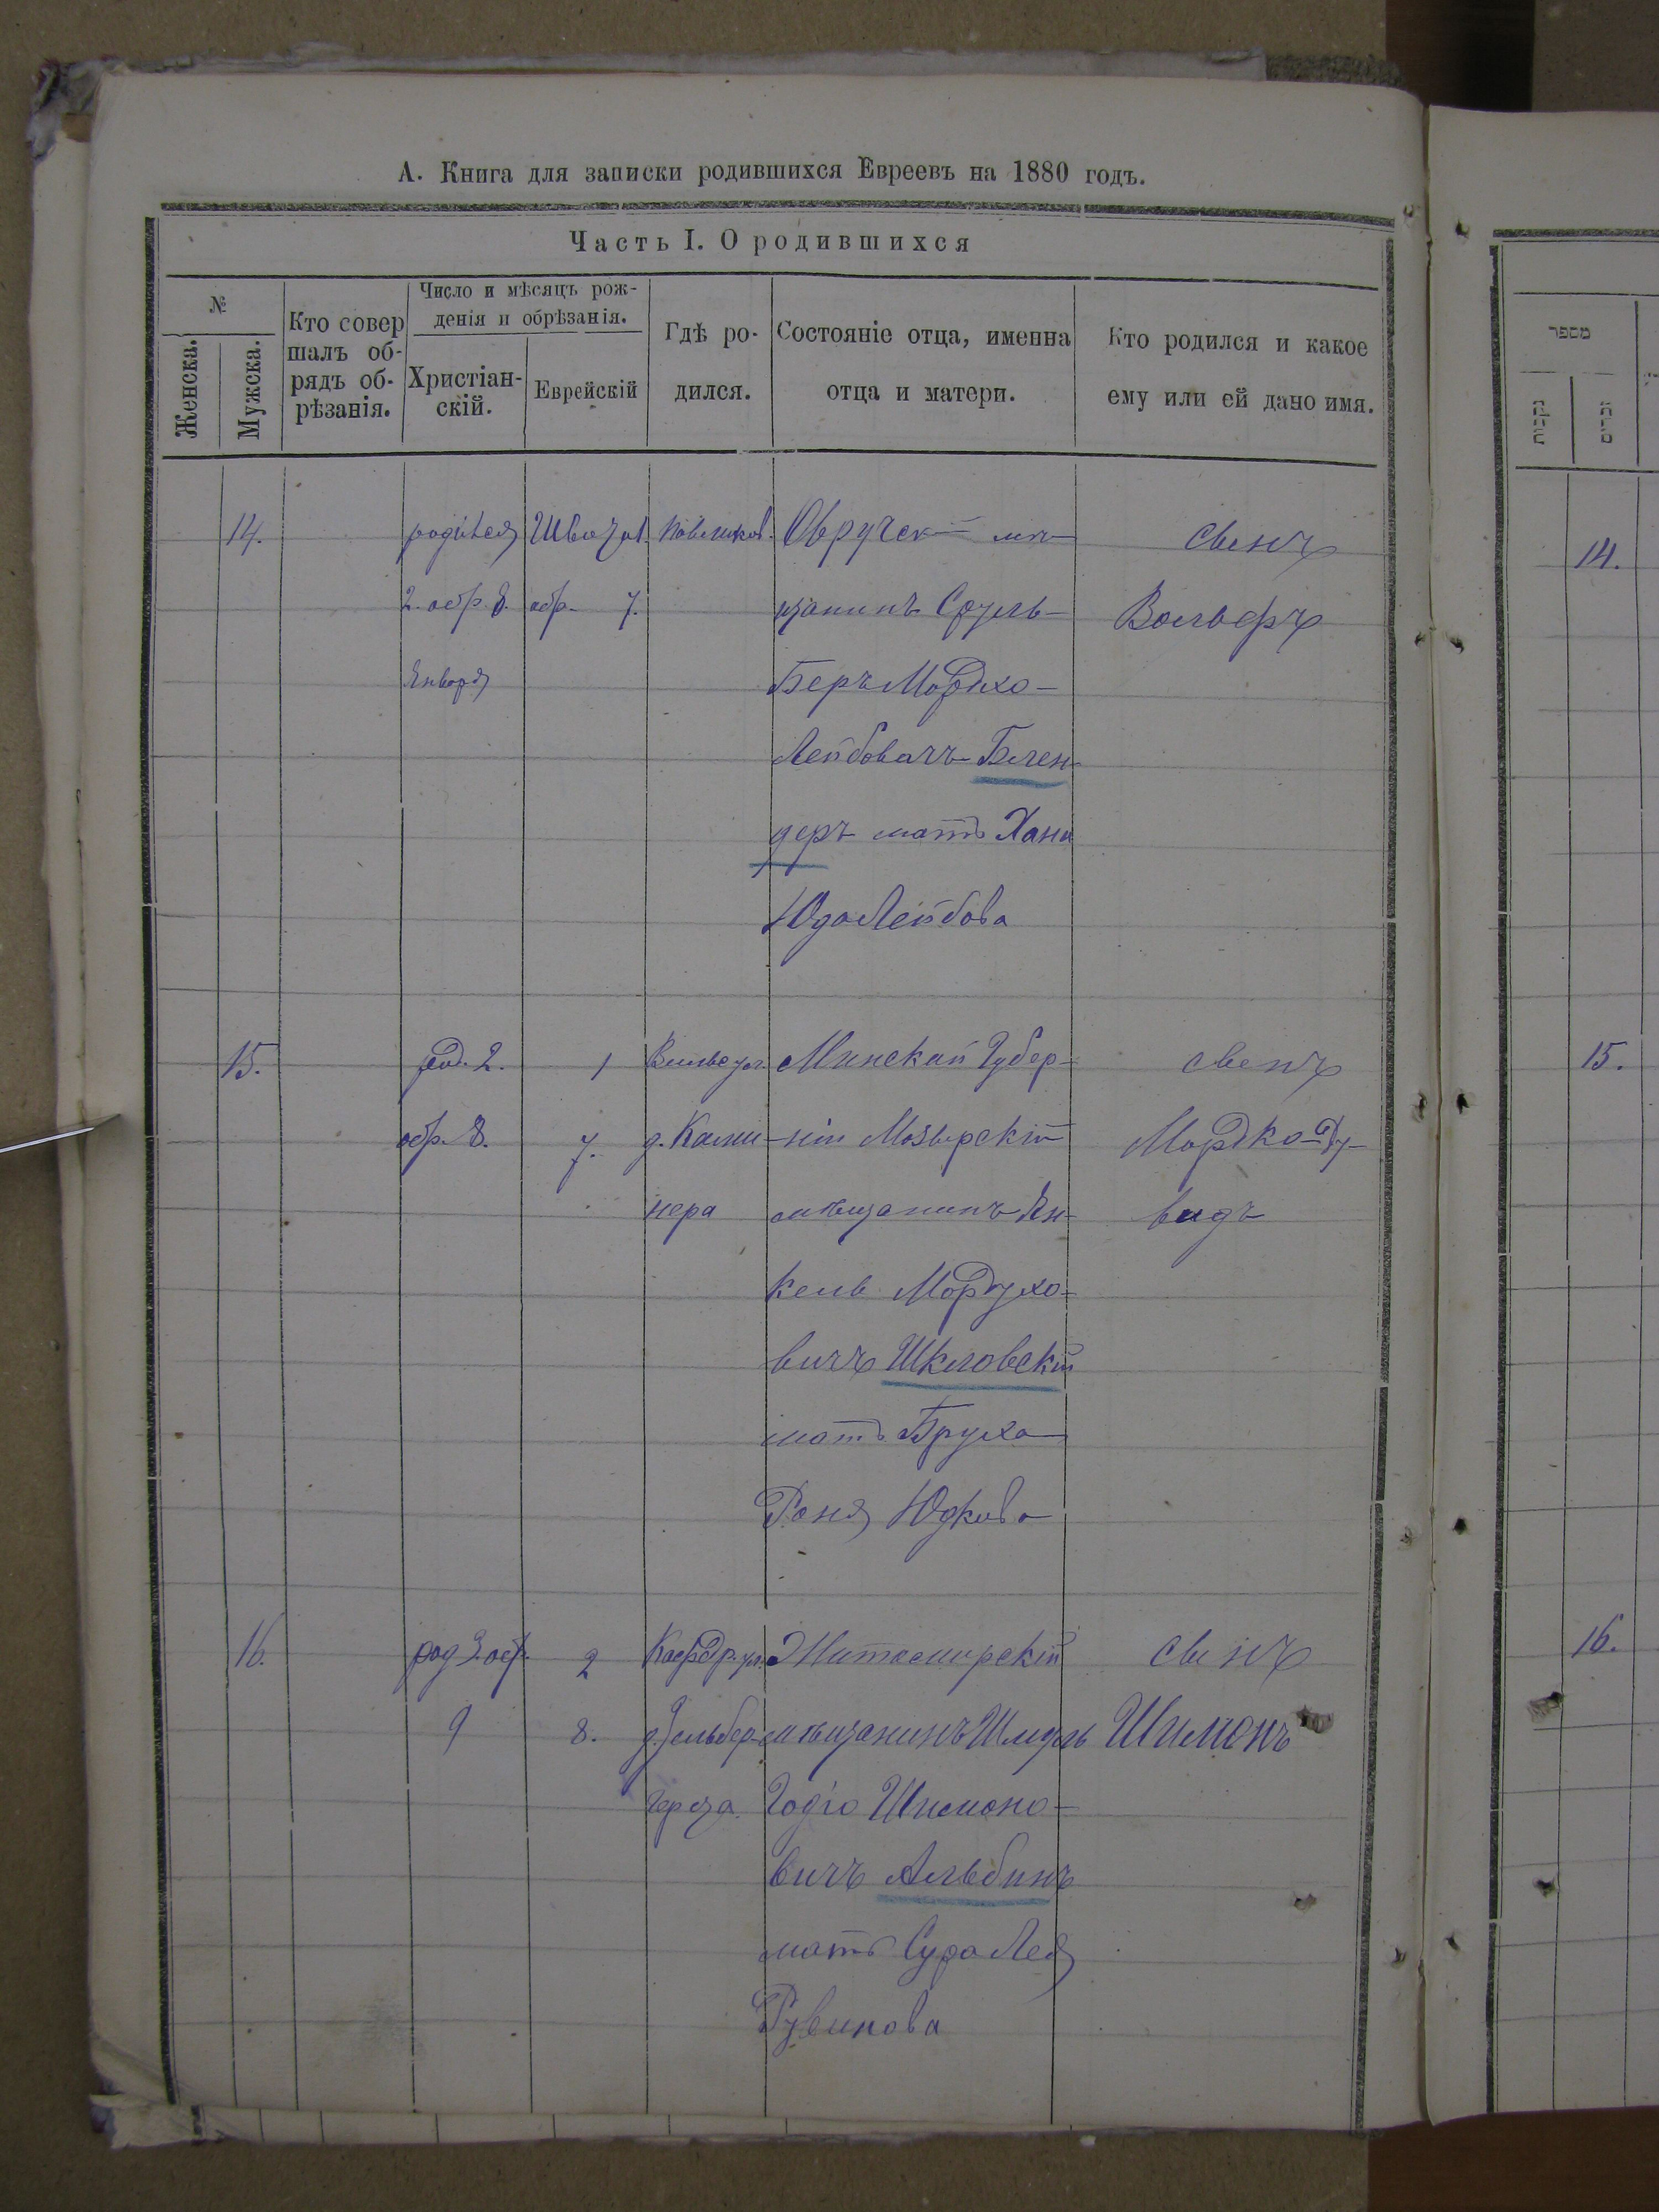 А. Книга для записки родившихся Евреевъ на 1880 годъ.
Часть I. О родившихся
№
Женска.
Мужска.
Кто совер
шалъ об-
рядъ об-
рѣзанія.
Число и мѣсяцъ рож-
денія и обрѣзанія.
Христіан-
скій.
Еврейскій
Гдѣ ро-
дился.
Состояніе отца, именна
отца и матери.
Кто родился и какое
ему или ей дано имя.
14.
родился
2. обр. 8.
Января
обр. 7.
Овруческій мѣ-
щанинъ Сруль-
Беръ Мордхо-
Лейбовичъ Блен-
деръ мать Хана
Юдо Лейбова
свенъ
Вольфъ
15.
род. 2.
обр. 8.
1
7.
д. Кални-
нера
Минской Губер-
ніи Мозырскій
мѣщанинъ Ян-
кель Мордухо-
вичъ Шкловскій
мать Бруха
Роня Юдкова
свенъ
Мордко-Ду-
видъ
16.
род 3. обр.
9
2
8.
Кафедр. ул.
д. Гельбер-
Житомирскій
мѣщанинъ Шмуль
Годіо Шимоно-
вичъ Альбинъ
мать Сура Лея
Рувинова
свенъ
Шимонъ
מספר
נקבות
זכרים
14.
15.
16.